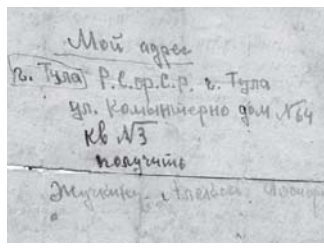 Мой адрес
г. Тула Р.С.ф.С.Р. г. Тула
ул. Коминтерно дом №64
кв №3
получить
Жучкину